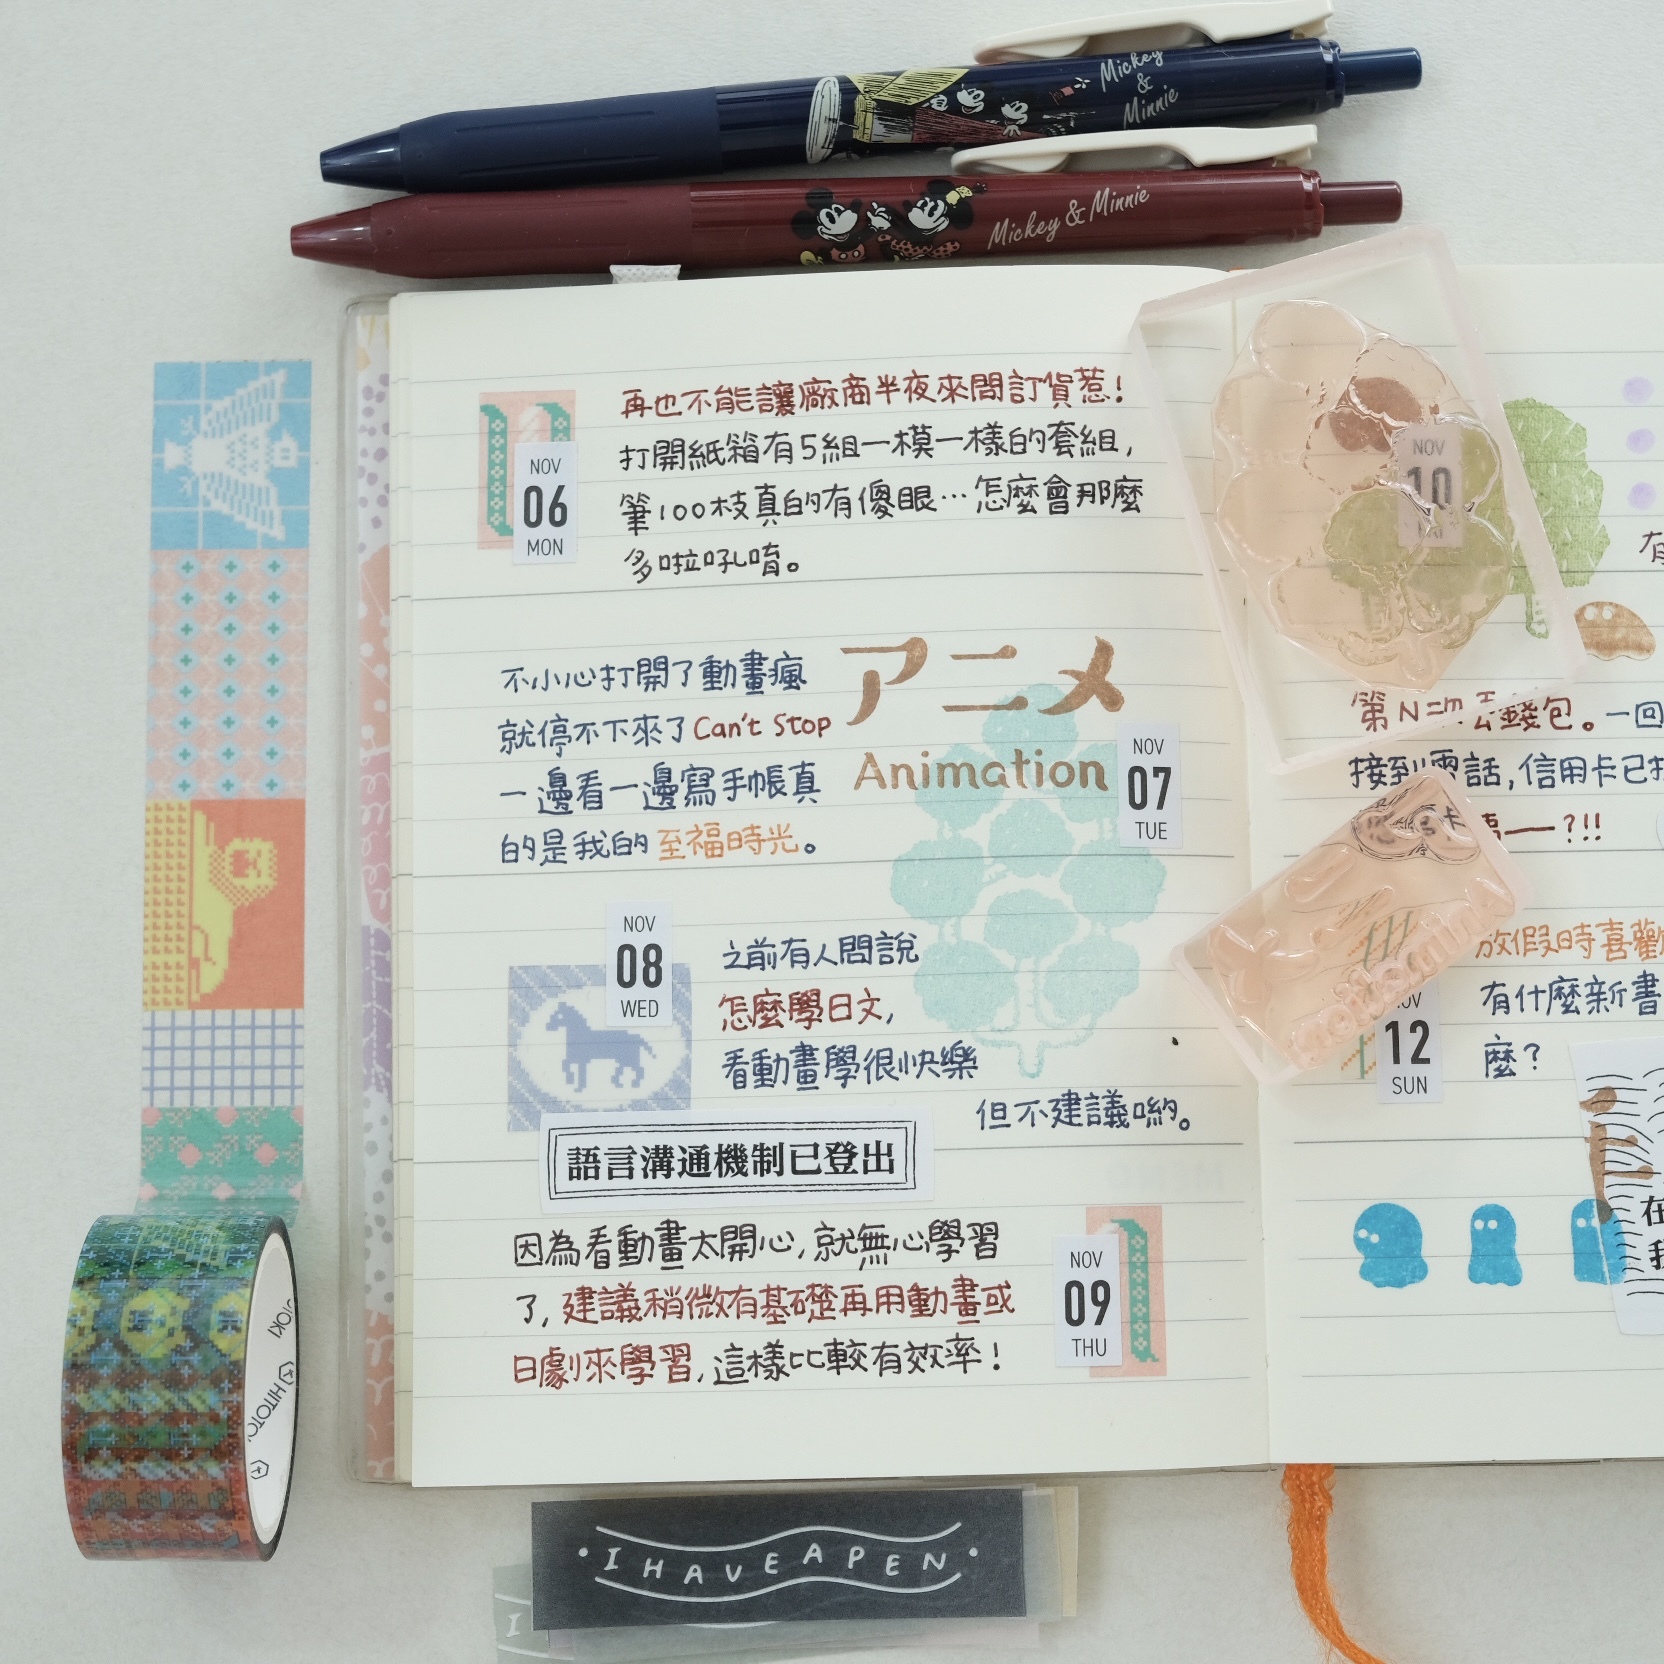 Mickey
&
Minnie
Mickey & Minnie
再也不能讓廠商半夜來問訂貨惹!
打開紙箱有5組一模一樣的套組,
筆100枝真的有傻眼…怎麼會那麼
多啦吼唷。
NOV
06
MON
不小心打開了動畫瘋
就停不下來了Can't Stop
一邊看一邊寫手帳真
的是我的至福時光。
アニメ
Animation
NOV
07
TUE
NOV
08
WED
之前有人問說
怎麼學日文,
看動畫學很快樂
但不建議喲。
語言溝通機制已登出
因為看動畫太開心,就無心學習
了,建議稍微有基礎再用動畫或
日劇來學習,這樣比較有效率!
NOV
09
THU
NOV
10
FRI
有
第N次丟錢包。一回
接到電話,信用卡已
?!!
放假時喜歡
有什麼新書
麼?
NOV
12
SUN
Animation
在
我
HITOTOKI
I HAVE A PEN
I